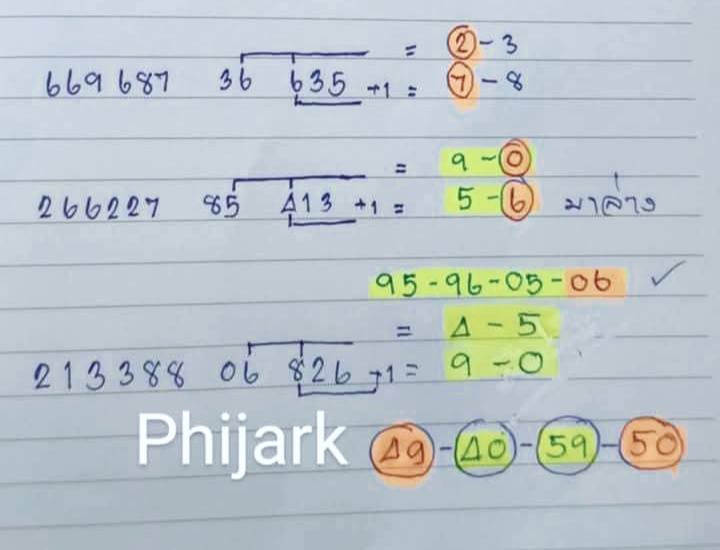 = 2-3
669 687 36 635 +1 = 7-8
= 9-0
266227 85 413 +1 = 5-6 มาล่าง
95-96-05-06 ✓
= 4-5
213388 06 826 +1 = 9-0
Phijark 49-40-59-50